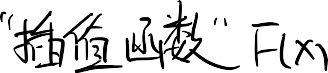 “插值函数” F(x)